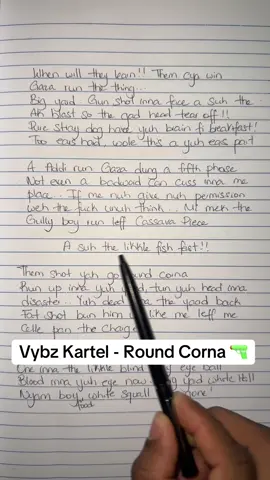 When will they learn!! Them cya win
Gaza run the thing...
Big yaad Gun shot inna face a suh the
AK blast so the gad head tear off!!
Pure stray dog have yuh brain fi breakfast!
Too ears hard, wole this a yuh ears part
A Addi run Gaza dung a fifth phase
Not even a badword can cuss inna me
place. If me nuh give nuh permission
weh the fuck unuh think... Mi mek the
Gully boy run leff Cassava Piece
A suh the likkle fish fast!!
Them shot yah go round corna
Run up inna yuh yaad, tun yuh head inna
disasta... Yuh dead inna the yaad back
Fat shot bun him like me leff me
Celle pan the Charge
Vybz Kartel - Round Corna 🔫
One inna the likkle blind bwoy eye ball
Blood inna yuh eye now white
Nyam boy white squall
food